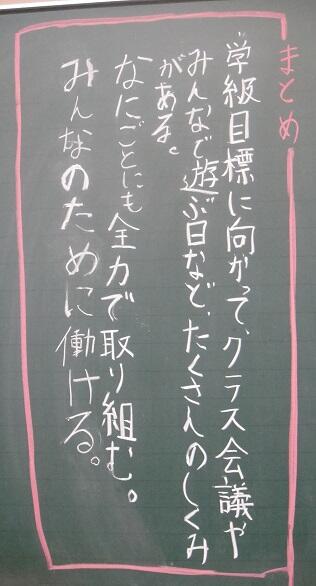 まとめ
学級目標に向かって、クラス会議や
みんなで遊ぶ日など、たくさんのしくみ
がある。
なにごとにも全力で取り組む。
みんなのために働ける。